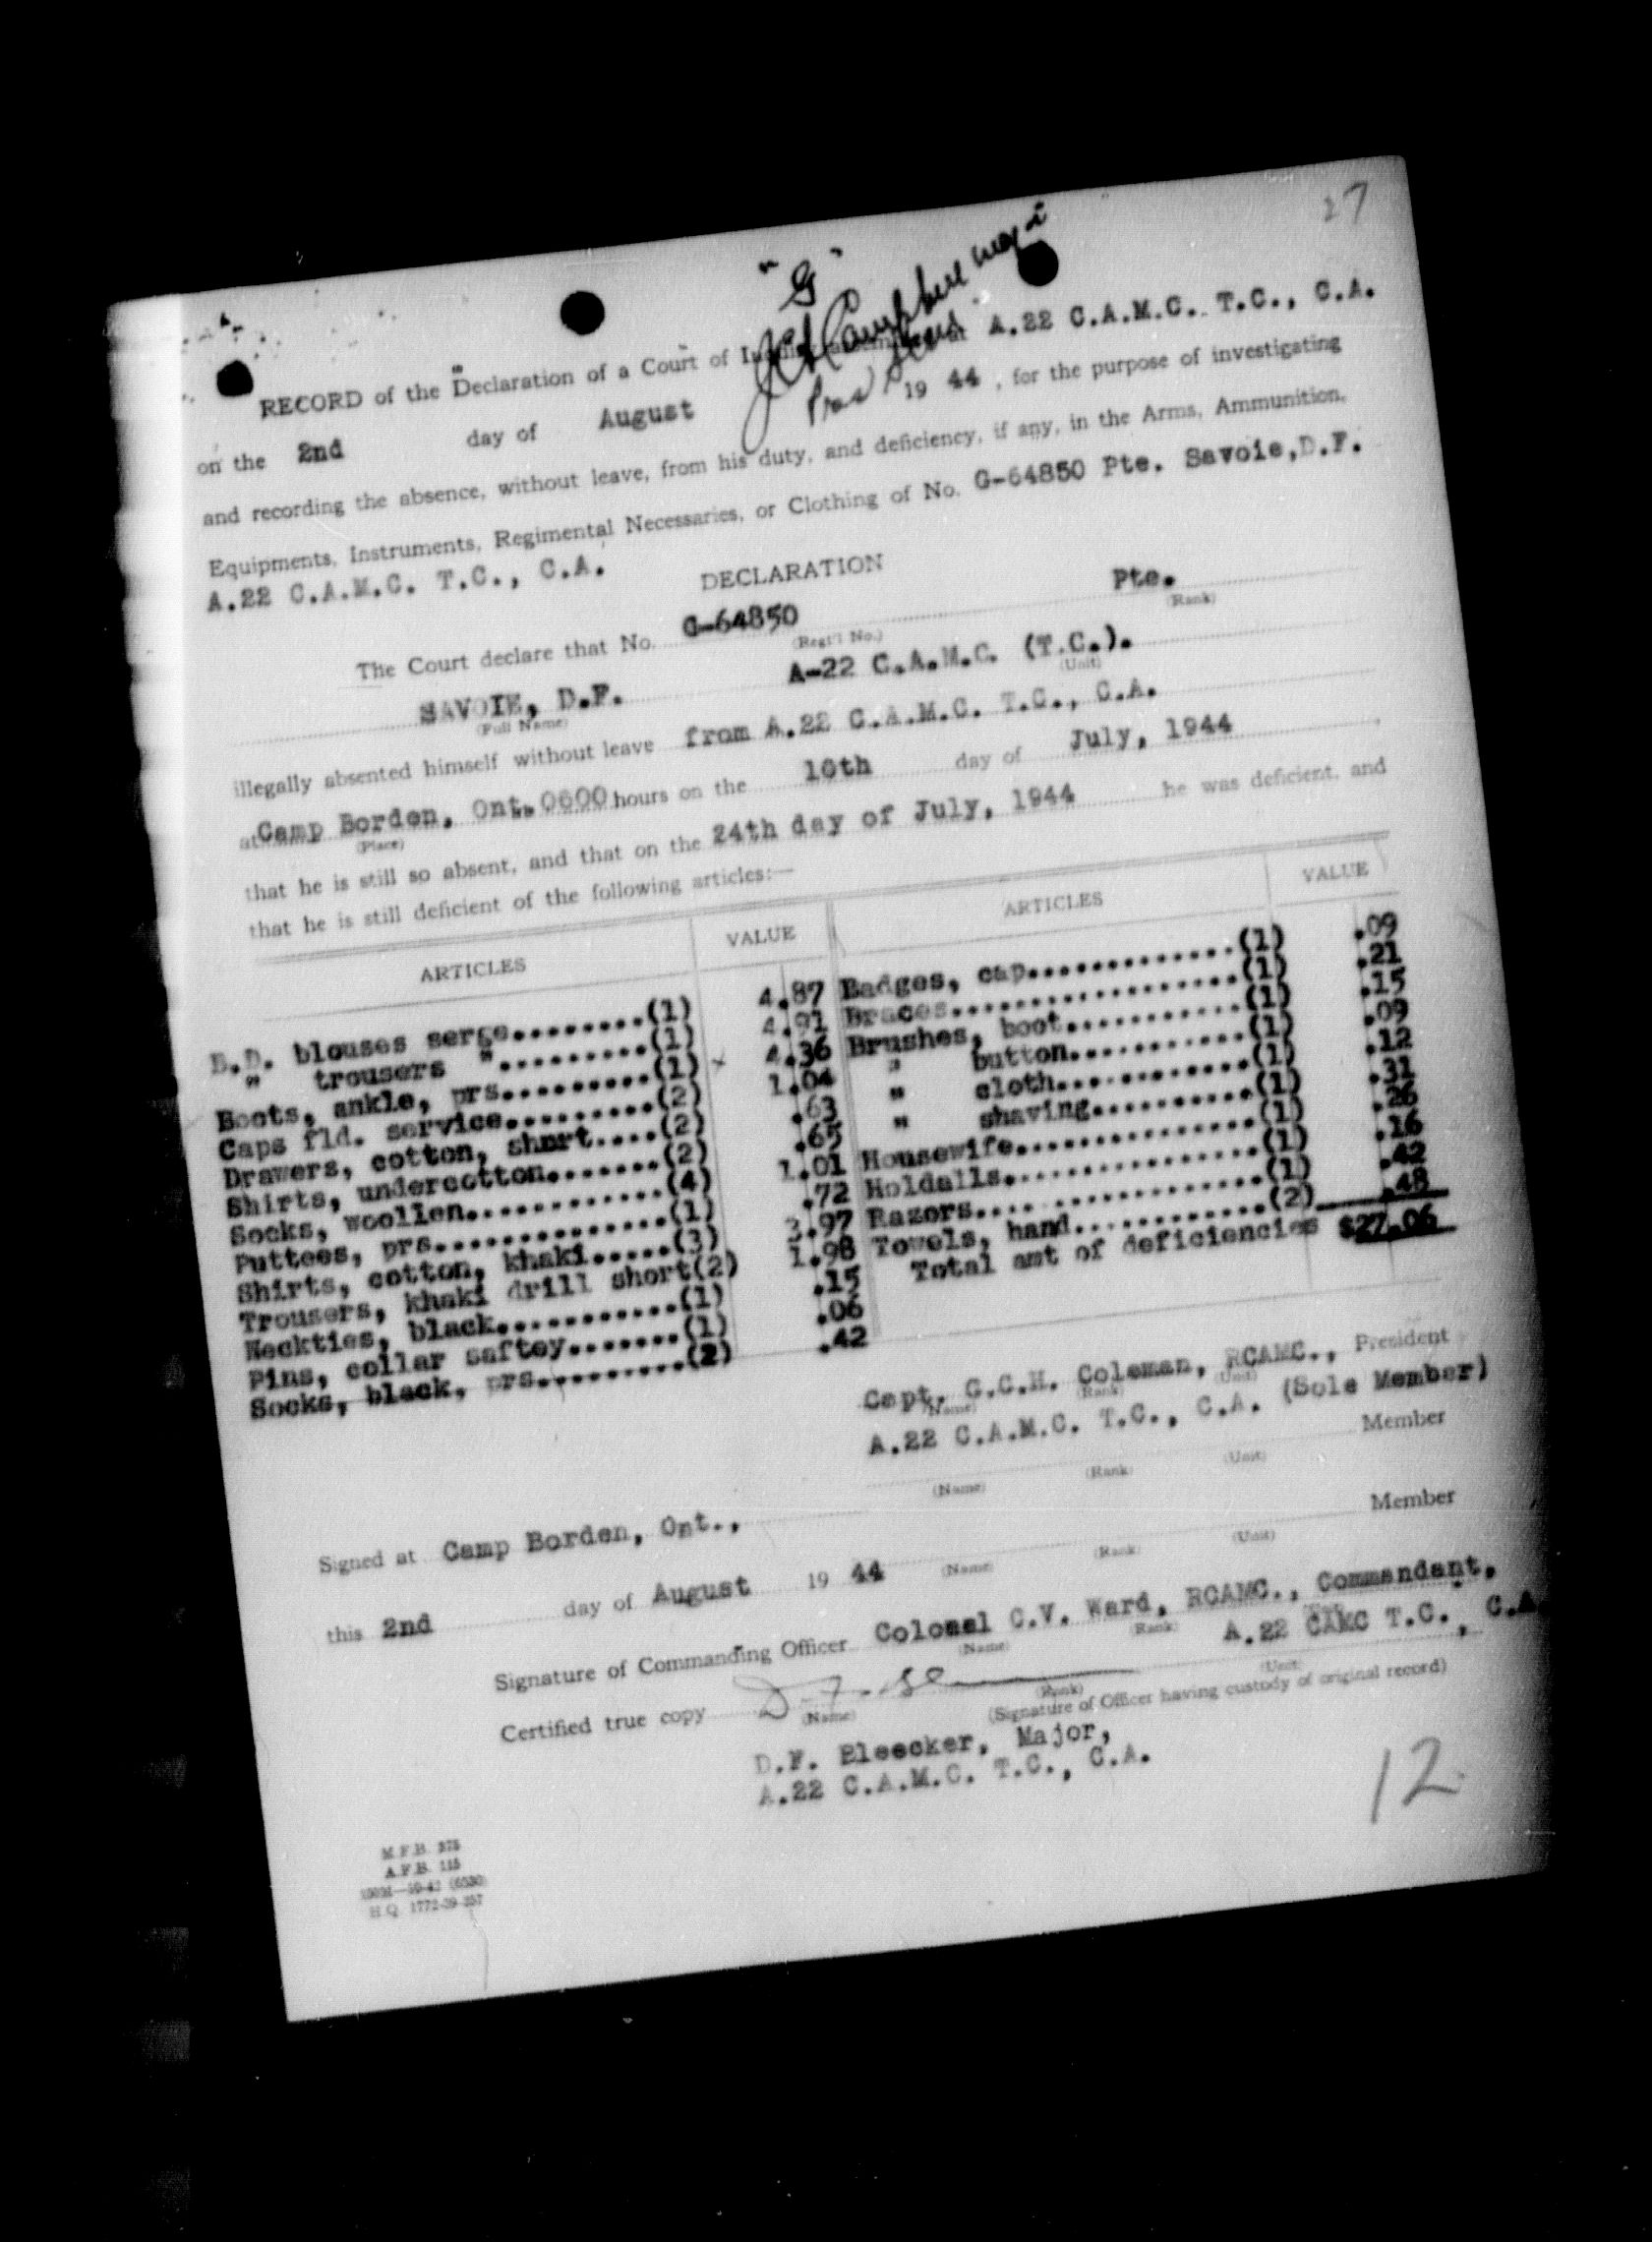 27
"G"
RECORD of the Declaration of a Court of Inquiry assembled at A.22 C.A.M.C. T.C., C.A.
on the 2nd day of August 19 44, for the purpose of investigating
and recording the absence, without leave, from his duty, and deficiency, if any, in the Arms, Ammunition,
Equipments, Instruments, Regimental Necessaries, or Clothing of No. G-64850 Pte. Savoie,D.F.
A.22 C.A.M.C. T.C., C.A.
DECLARATION
The Court declare that No. G-64850 Pte.
(Regt'l No.) (Rank)
SAVOIE, D.F. A-22 C.A.M.C. (T.C.).
(Full Name) (Unit)
illegally absented himself without leave from A.22 C.A.M.C. T.C., C.A.
at Camp Borden, Ont. 0600 hours on the 10th day of July, 1944
(Place)
that he is still so absent, and that on the 24th day of July, 1944 he was deficient, and
that he is still deficient of the following articles:—
ARTICLES VALUE ARTICLES VALUE
B.D. blouses serge........(1) 4.87 Badges, cap.............(1) .09
" trousers ".........(1) 4.91 Braces..................(1) .21
Boots, ankle, prs..........(1) 4.36 Brushes, boot...........(1) .15
Caps fld. service.........(2) 1.04 " button...........(1) .09
Drawers, cotton, short....(2) .63 " cloth............(1) .12
Shirts, undercotton.......(2) .65 " shaving..........(1) .31
Socks, woollen............(4) 1.01 Housewife...............(1) .26
Puttees, prs..............(1) .72 Holdalls................(1) .16
Shirts, cotton, khaki.....(3) 3.97 Razors..................(1) .42
Trousers, khaki drill short(2) 1.98 Towels, hand............(2) .48
Neckties, black...........(1) .15 Total amt of deficiencies $27.06
Pins, collar saftey.......(1) .06
Socks, black, prs.........(2) .42
Capt. G.C.H. Coleman, RCAMC., President
(Name) (Rank) (Unit)
A.22 C.A.M.C. T.C., C.A. (Sole Member)
Member
(Name) (Rank) (Unit)
Signed at Camp Borden, Ont., Member
(Name) (Rank) (Unit)
this 2nd day of August 19 44
Signature of Commanding Officer Colonel C.V. Ward, RCAMC., Commandant,
(Name) (Rank) A.22 CAMC T.C., C.A.
Certified true copy
(Name) (Rank) (Unit)
(Signature of Officer having custody of original record)
D.F. Bleecker, Major,
A.22 C.A.M.C. T.C., C.A.
12
M.F.B. 375
A.F.B. 115
H.Q. 1772-39-357